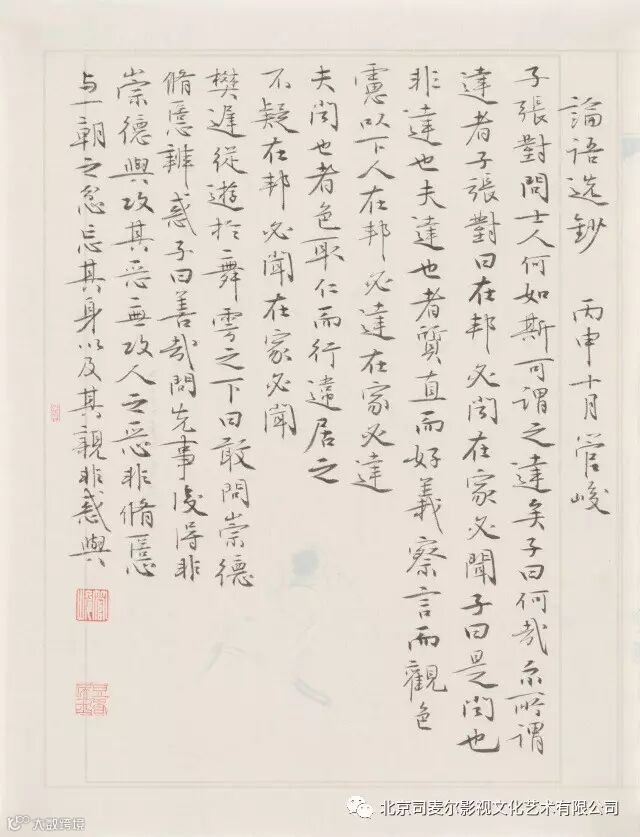 論語选鈔 丙申十月管峻
子張對問士人何如斯可謂之達矣子曰何哉尔所謂
達者子張對曰在邦必闻在家必聞子曰是闻也
非達也夫達也者質直而好義察言而觀色
慮以下人在邦必達在家必達
夫闻也者色取仁而行違居之
不疑在邦必聞在家必聞
樊遲從遊於舞雩之下曰敢問崇德
脩慝辨惑子曰善哉問先事後得非
崇德與攻其惡無攻人之惡非脩慝
与一朝之忿忘其身以及其親非惑與
北京司麦尔影视文化艺术有限公司
大数跨境